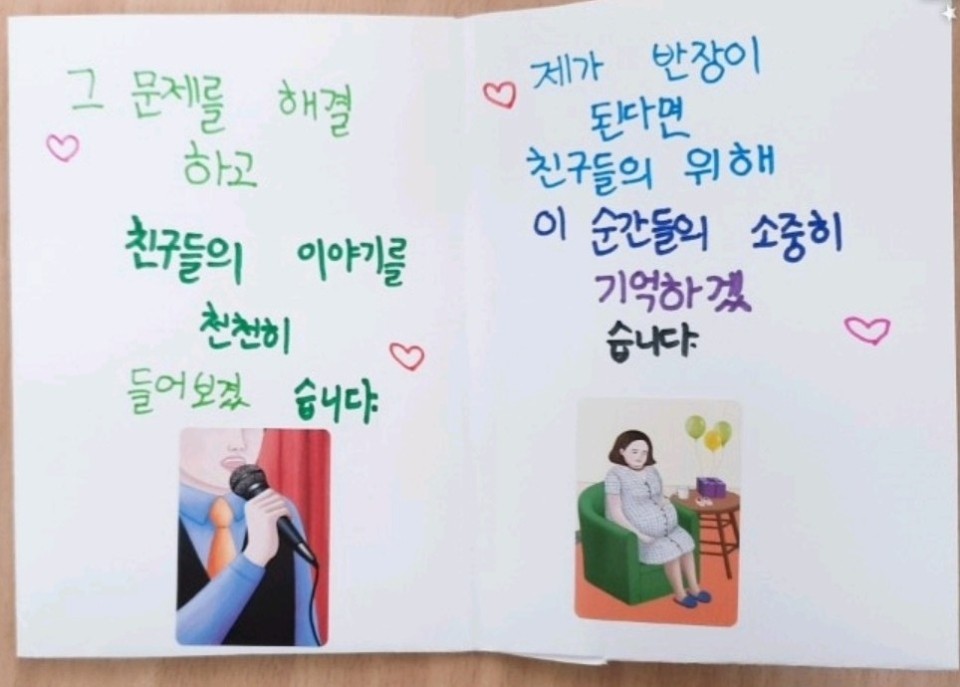 그 문제를 해결
하고
친구들의 이야기를
천천히
들어보겠 습니다.
제가 반장이
된다면
친구들의 위해
이 순간들의 소중히
기억하겠
습니다.